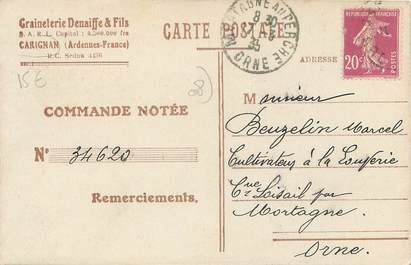 Graineterie Denaiffe & Fils
S. A. R. L. Capital : 4.500.000 frs
CARIGNAN (Ardennes-France)
R.C. Sedan 4436
15€
88
COMMANDE NOTÉE
N° 34620
Remerciements.
CARTE POSTALE
MORTAGNE AU PERCHE
8 30
35
ORNE
ADRESSE
RÉPUBLIQUE FRANÇAISE
20c
POSTES
Monsieur
Beuzelin Marcel
Cultivateur à la
Cne par
Mortagne
Orne.